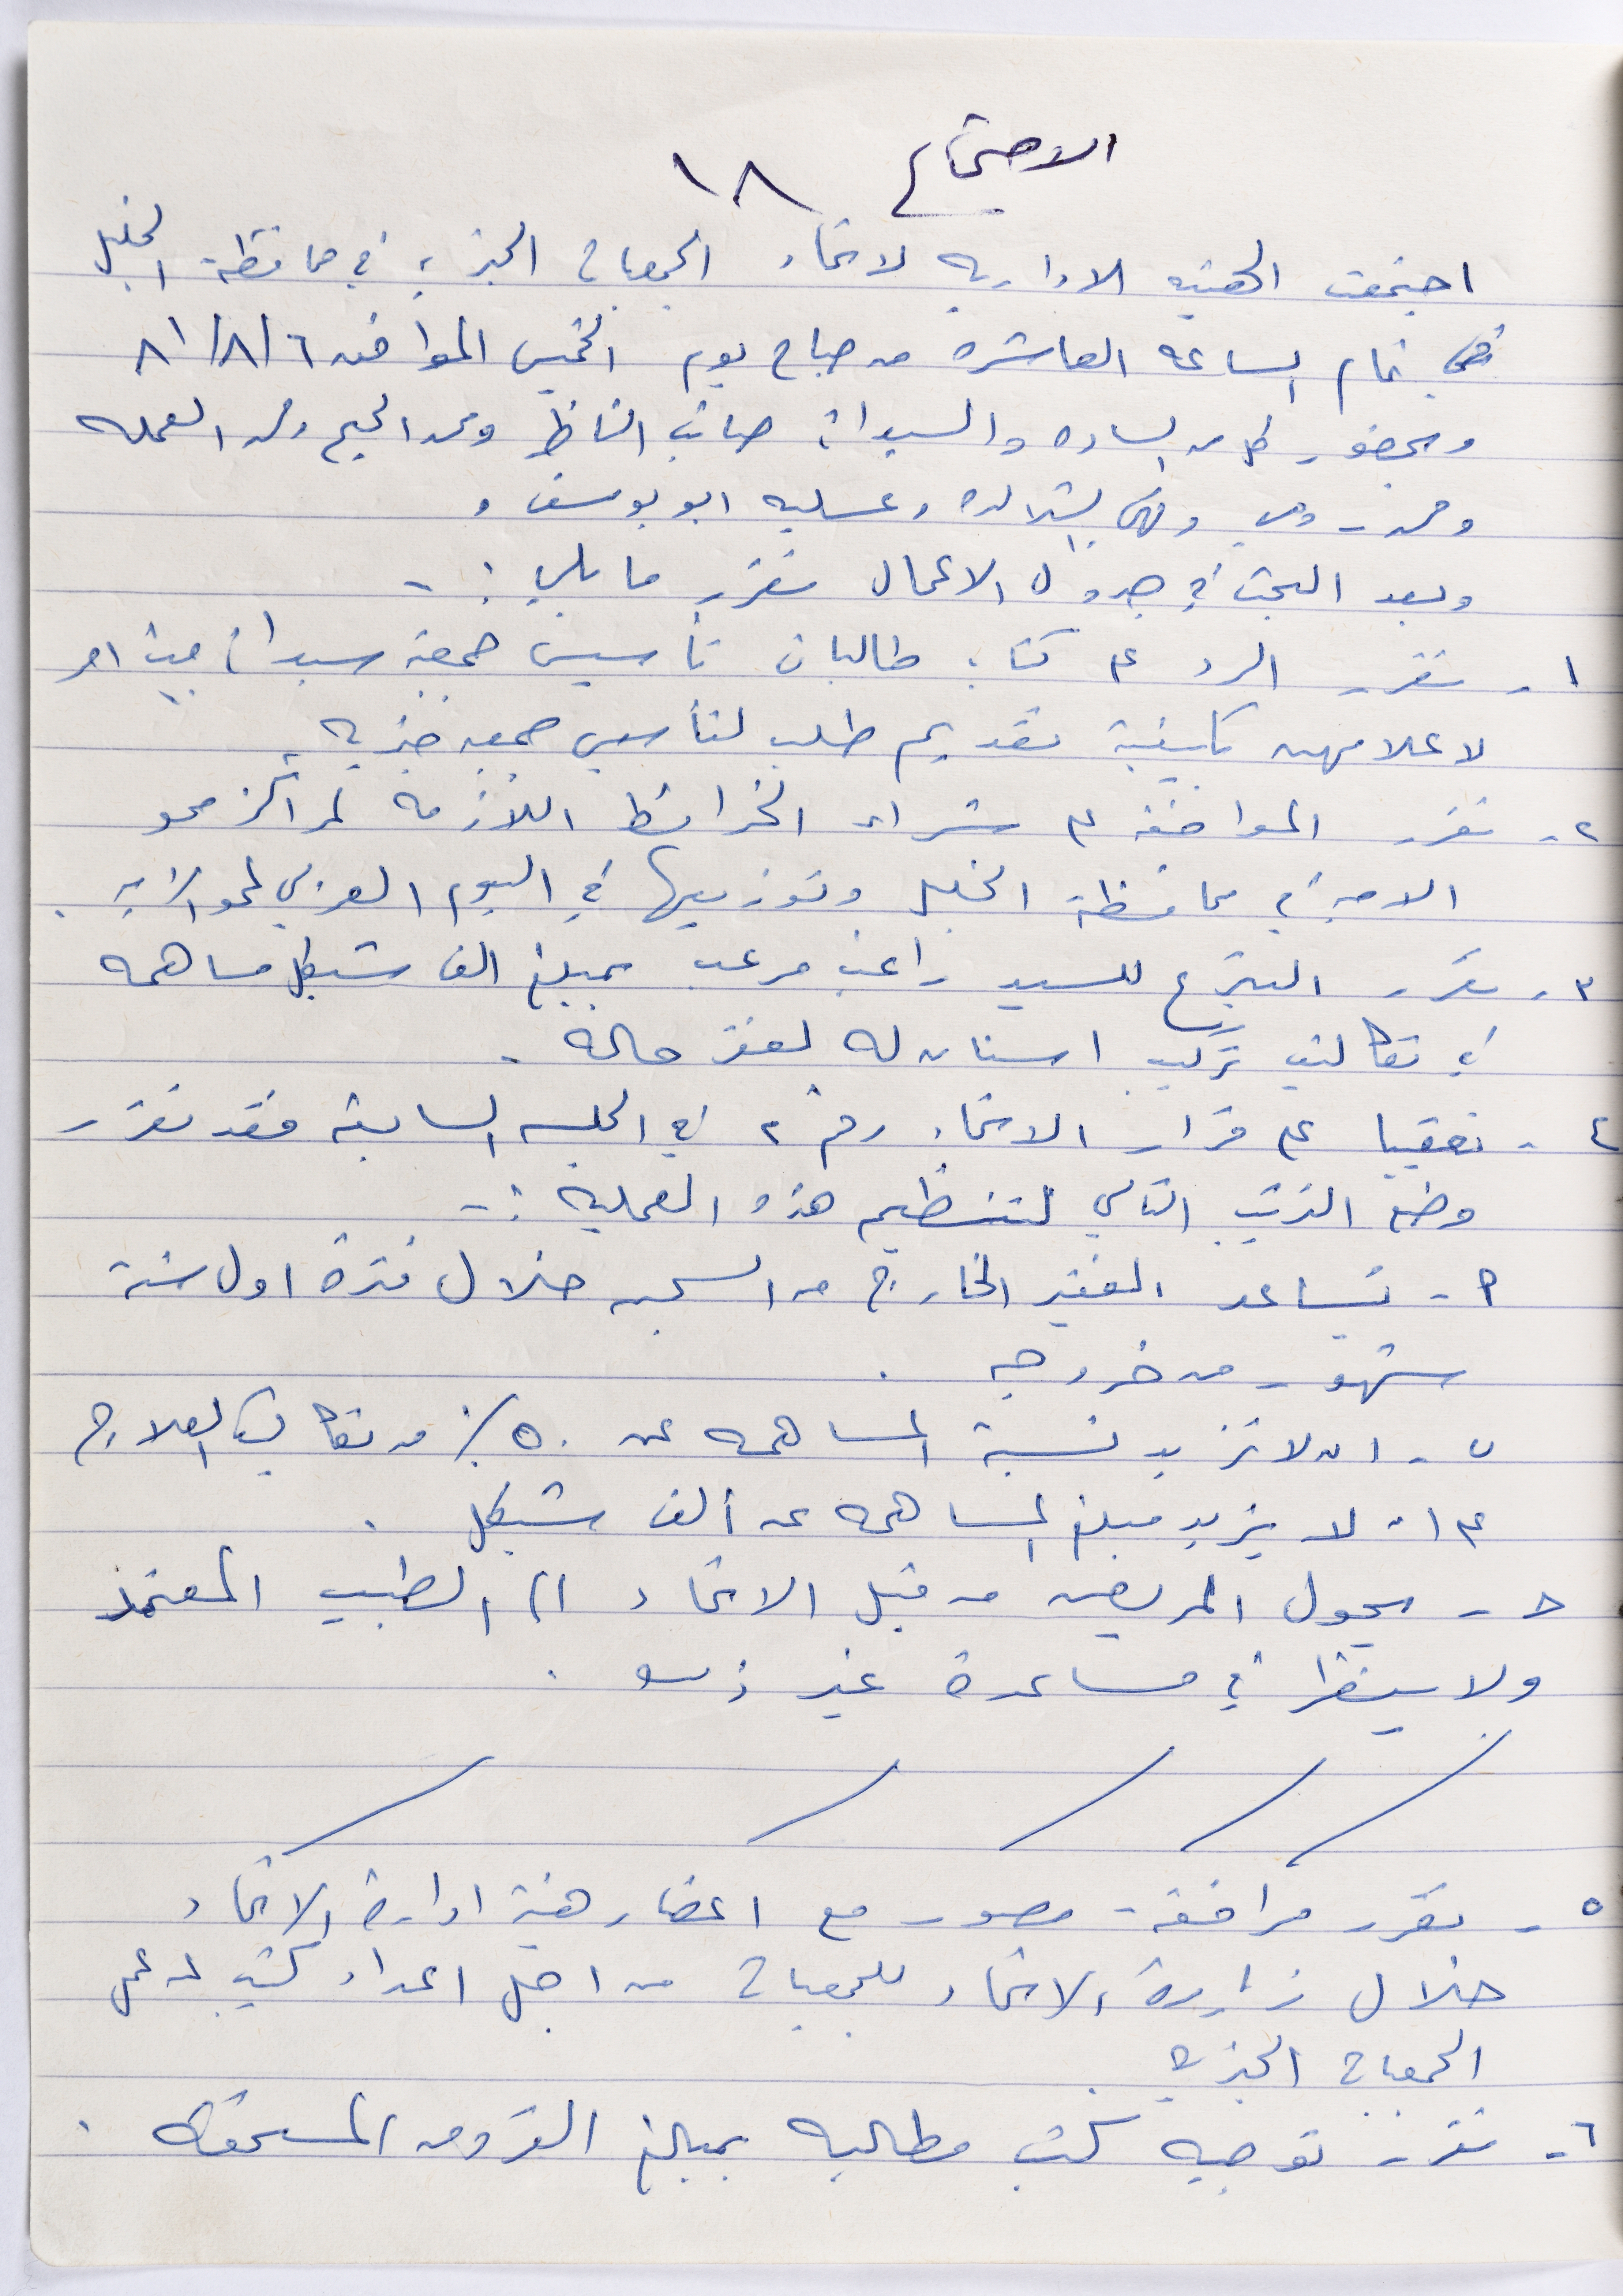 الاجتماع ١٨
اجتمعت الهيئه الاداريه لاتحاد الجمعيات الخيرية في محافظة الخليل
في تمام الساعه العاشره من صباح يوم الخميس الموافق ٦/٨/٨١
وبحضور كل من الساده والسيدات صائب الناظر و العمله
و ابو يوسف و
وبعد البحث في جدول الاعمال تقرر ما يلي :-
١- تقرر الرد على كتاب طالبات تأسيس جمعية سيدات بيت امر
لاعلامهن بكيفية تقديم طلب لتأسيس جمعيه خيريه
٢- تقرر الموافقه على شراء الخرائط اللازمة لمراكز محو
الاميه في محافظة الخليل وتوزيعها في اليوم العربي لمحو الاميه .
٣- تقرر التبرع للسيد راغب مرعب بمبلغ الف شيكل مساهمه
في تكاليف تركيب اسنان له لفقر حاله .
٤- تعقيبا على قرار الاتحاد رقم ٢ في الجلسه السابقة فقد تقرر
وضع الترتيب التالي لتنظيم هذه العملية :-
أ- تساعد الفقير الخارج من السجن خلال فترة اول ستة
شهور من خروجه .
ب- ان لا تزيد نسبة المساهمه عن ٥٠٪ من تكاليف العلاج
على ان لا يزيد مبلغ المساهمه عن ألف شيكل .
ح- يحول المريض من قبل الاتحاد الى الطبيب المعتمد
ولا ينظر في مساعدة غير ذلك .
٥- تقرر مرافقة مصور مع اعضاء هيئة ادارة الاتحاد
خلال زيارة الاتحاد للجمعيات من اجل اعداد كتيب عن عمل
الجمعيات الخيرية .
٦- تقرر توجيه كتب مطالبه بمبالغ القروض المستحقه .